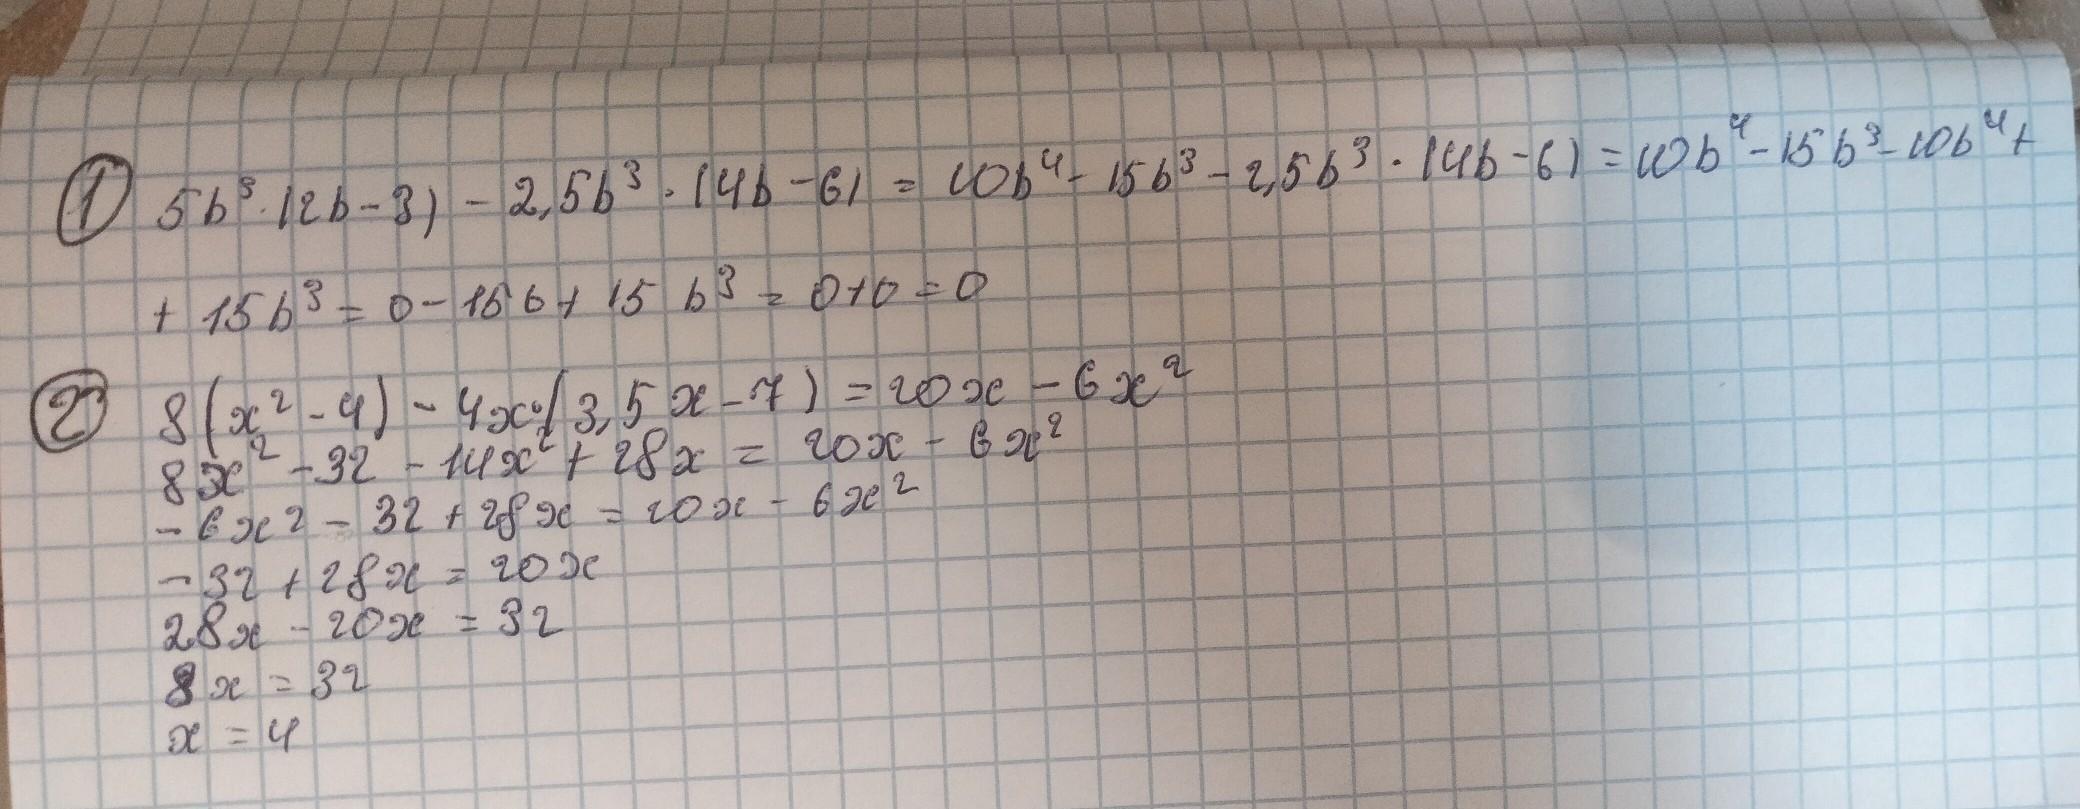 ① 5b³·(2b-3)-2,5b³·(4b-6)=10b⁴-15b³-2,5b³·(4b-6)=10b⁴-15b³-10b⁴+
+15b³=0-15b+15b³=0+0=0
② 8(x²-4)-4x·(3,5x-7)=20x-6x²
8x²-32-14x²+28x=20x-6x²
-6x²-32+28x=20x-6x²
-32+28x=20x
28x-20x=32
8x=32
x=4